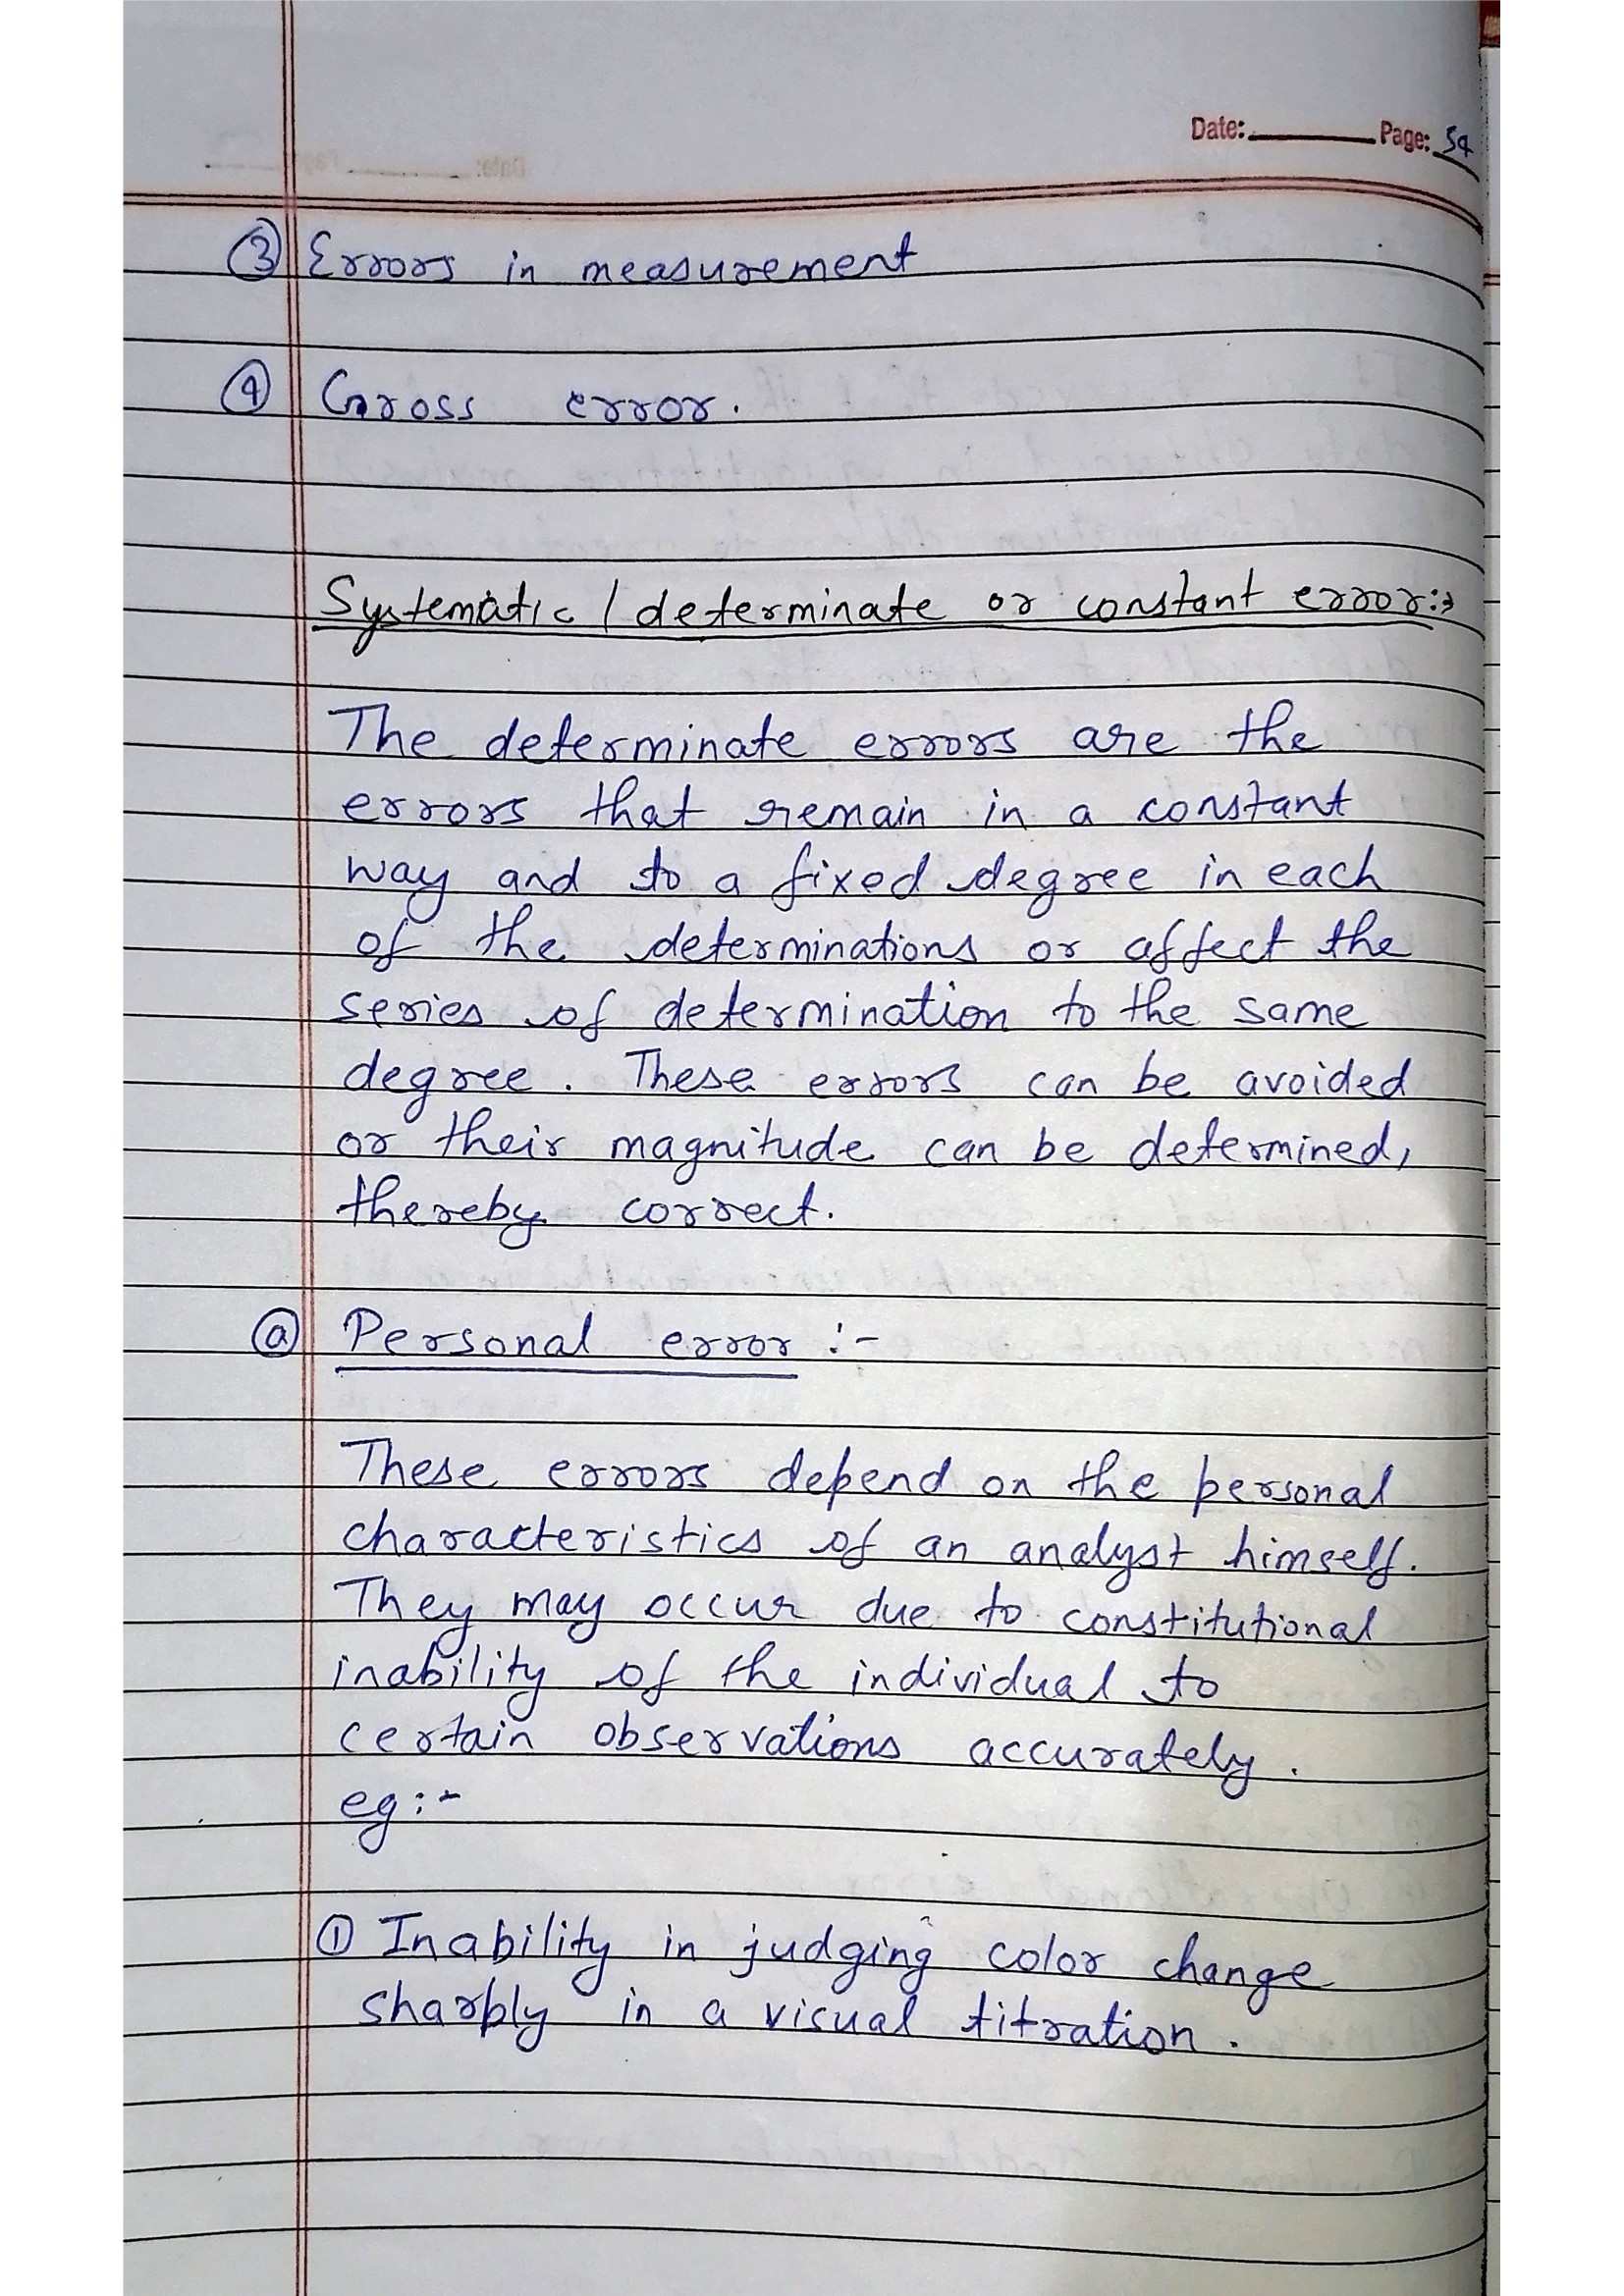 Date: Page: 54
③ Errors in measurement
④ Gross error.
Systematic / determinate or constant error:→
The determinate errors are the
errors that remain in a constant
way and to a fixed degree in each
of the determinations or affect the
series of determination to the same
degree. These errors can be avoided
or their magnitude can be determined,
thereby correct.
ⓐ Personal error :-
These errors depend on the personal
characteristics of an analyst himself.
They may occur due to constitutional
inability of the individual to
certain observations accurately.
eg:-
① Inability in judging color change
sharply in a visual titration.